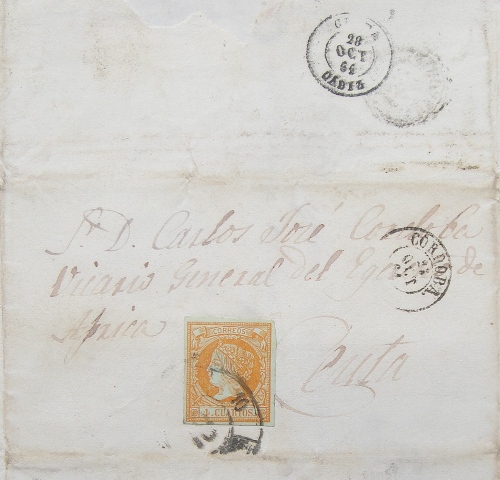 CEUTA
28
OCT
64
CADIZ
Sr. D. Carlos José Cordoba
Vicario General del
de
Africa
Ceuta
CORDOBA.
OCT
CORREOS
4 CUARTOS